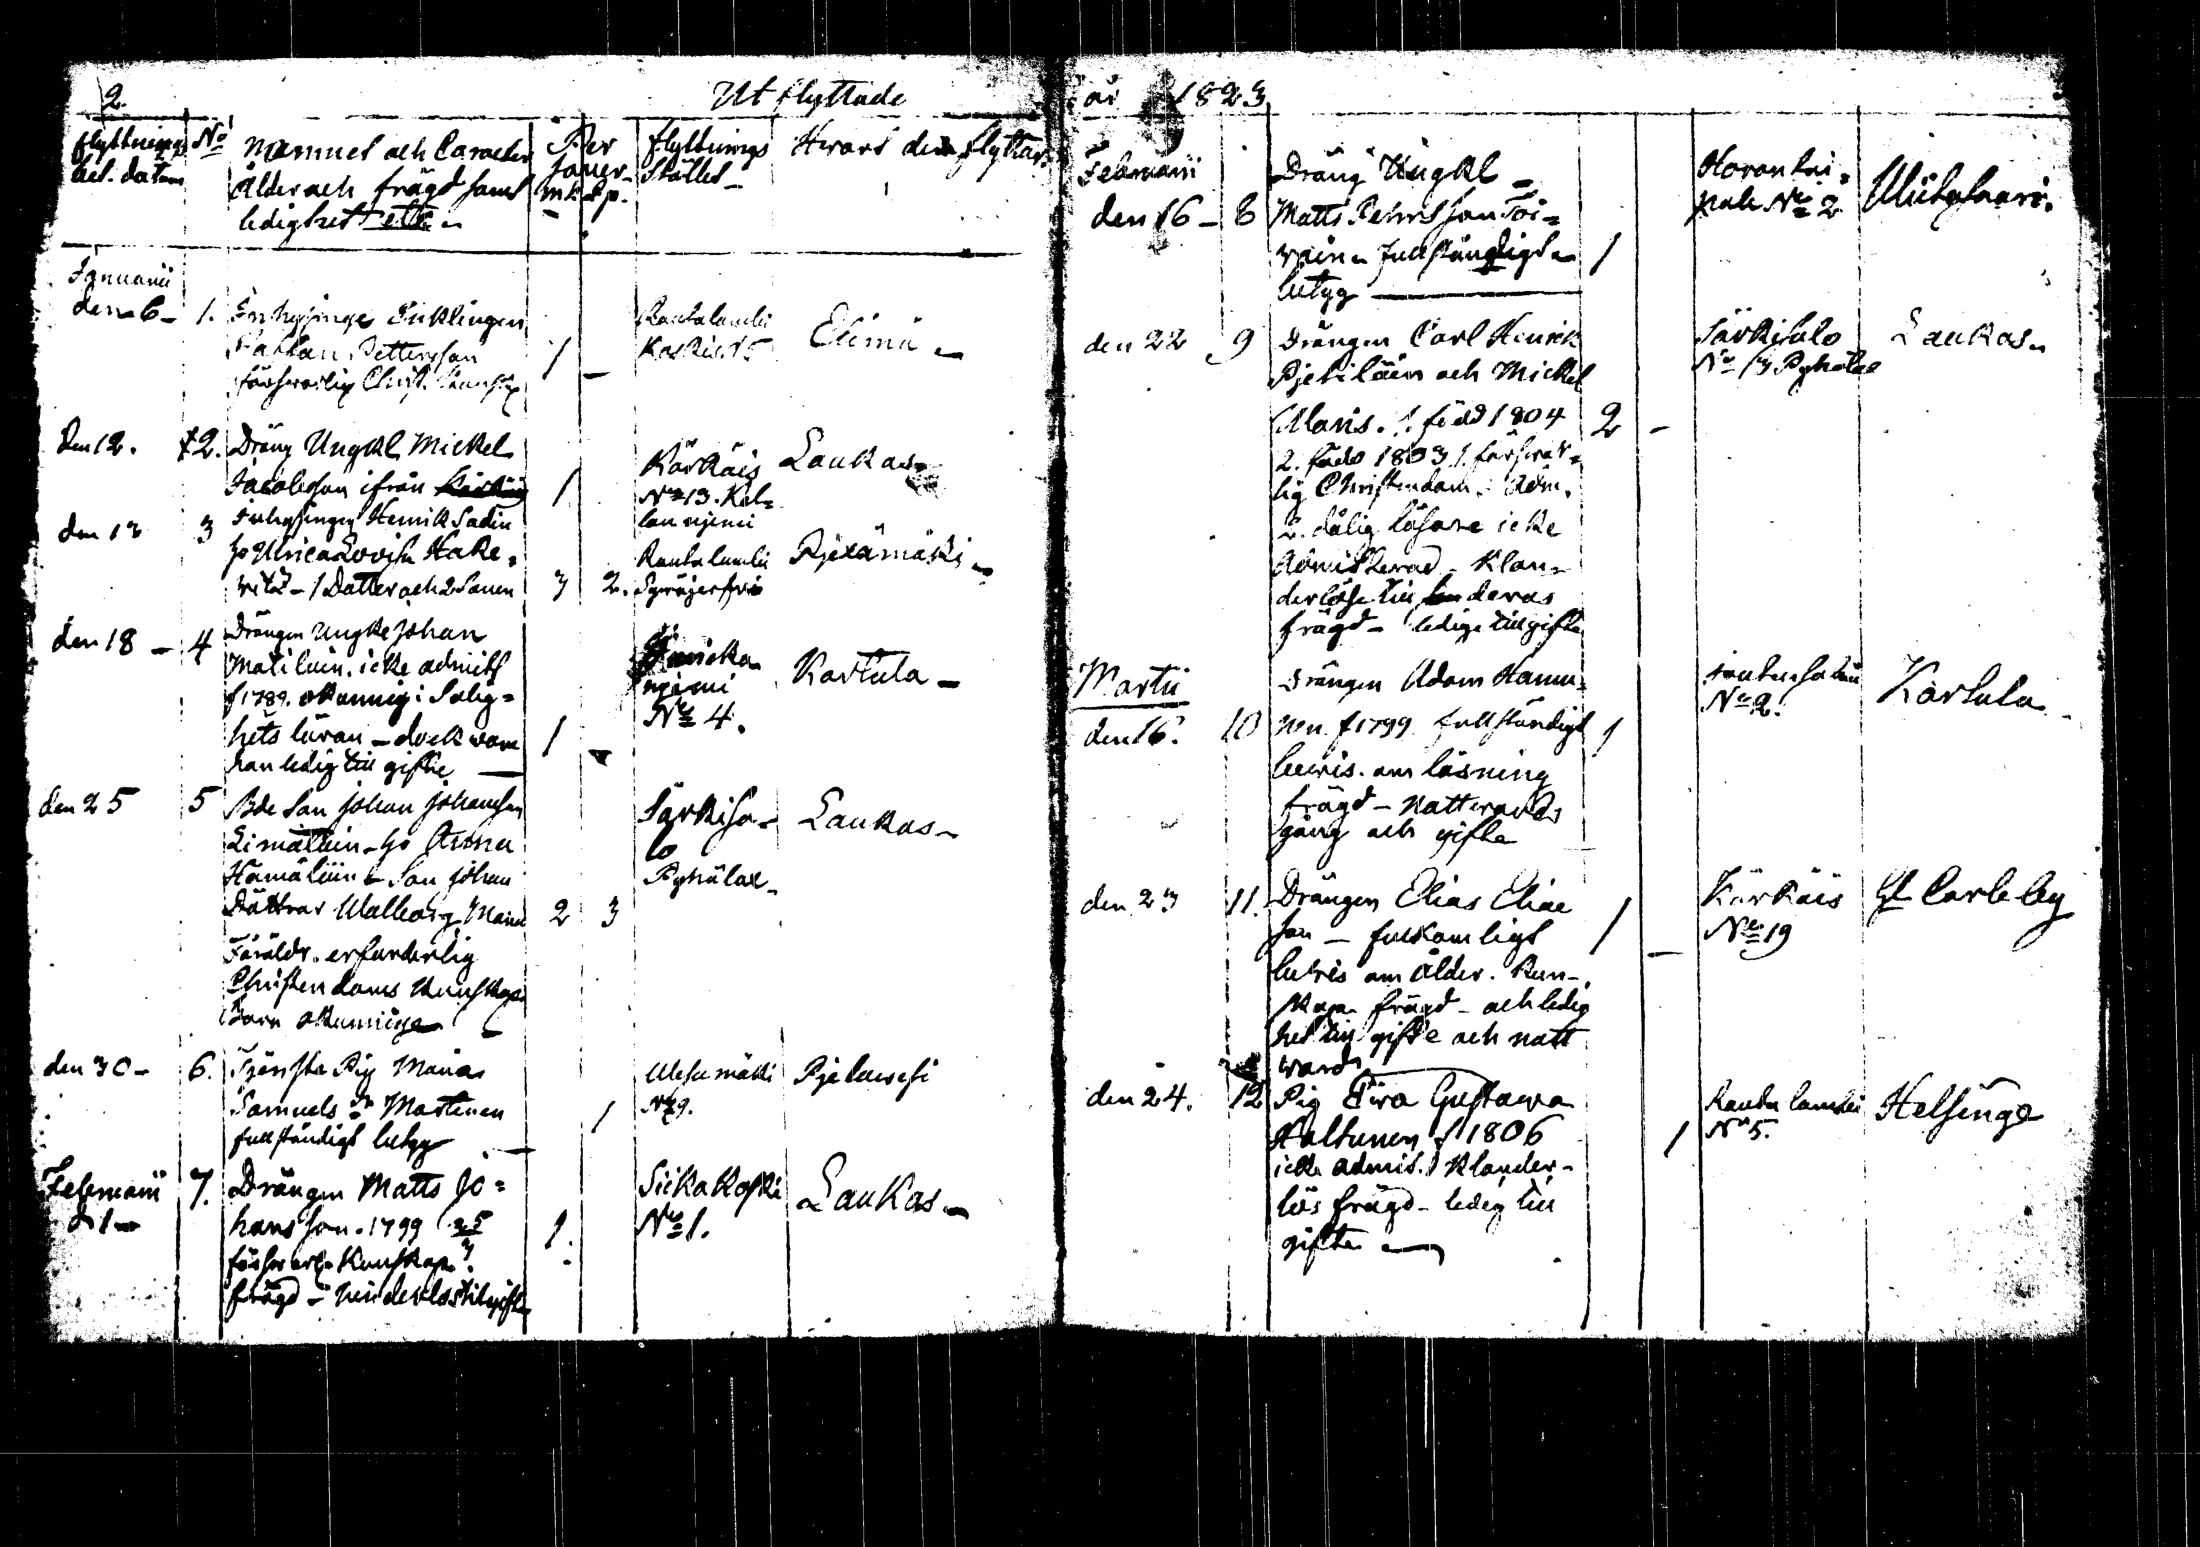 2.
Utflyttade
år 1823
flyttnings
bet. datum
No
Namnet och Caracter
Ålder och frägd samt
ledighet etc.
Per
soner
mk. qp.
flyttnings
Stället
Hvart de flyttar
Januarii
den 6 1. Inhysinge
Pettersson
försvarlig Christ.
1
Rautalambi
No 15
Elimä
den 12. 2. Dräng Ungkl Mickel
Jacobsson ifrån
1
Kärkäis
No 13. Kel-
lannjemi
Laukas
den 13 3 Inhysingen Henrik Sadin
ho Ulrica Lovisa Hake-
witz - 1 Dotter och 2 Söner
3 2.
Rautalambi
Pjexämäki
den 18 4 Drängen Ungke Johan
Matilain. icke admitt
f 1789. okunnig i Salig-
hets läran - dock vare
han ledig till gifte
1
njemi
No 4.
Kartula
den 25 5 Bde Son Johan Johansson
Limattain - ho Anna
Hämäläin - Son Johan
Döttrar Walborg, Maria
2 3
Föräldr. erforderlig
Christendoms Kunskap
Barn okunnige
Särkisa-
lo
Pyhälax
Laukas
den 30 6. Tjenste Pig Maria
Samuels Dr Martinen
fullständigt betyg
1
No 9.
Pjelavesi
Februarii
d 1 7. Drängen Matts Jo-
hansson. 1799
försvarl. Kunskap.
frägd - hinderlös till gifte
1.
Siikakoski
No 1.
Laukas
Februarii
den 16 8 Dräng Ungkl
Matts Pehrsson Toi-
vain. fullständigt
betyg
1
Horontai-
pale No 2
Wiitasaari.
den 22 9 Drängen Carl Henrik
Pjetiläin och Mickel
Manis. 1 född 1804
2. född 1803 1. försvar-
lig Christendom. Adm.
2. dålig läsare icke
Admitterad - Klan-
derlöse till deras
frägd - ledige till gifte
2
Särkisalo
No 13 Pyhälax
Laukas
Martii
den 16. 10 Drängen Adam Hanni-
nen f 1799 fullständigt
bevis. om läsning
frägd - Nattvards
gång och gifte
1
No 2.
Kartula
den 23 11. Drängen Elias Eliae
son - fulkomligt
bevis om Ålder. Kun-
skap frägd - och ledig
het till gifte och natt
vard
1
Kärkäis
No 19
Gl Carleby
den 24. 12 Pig Eva Gustava
Haltunen f 1806
icke admit. Klander-
lös frägd - ledig till
gifte
1
Rautalambi
No 5.
Helsinge